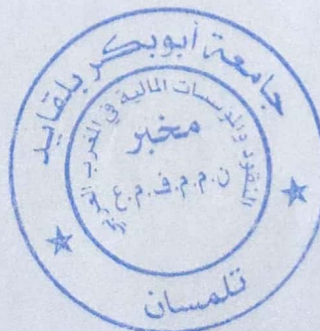 جامعة أبوبكر بلقايد
النقود والمؤسسات المالية في المغرب العربي
مخبر
ن.م.م.ف.م.ع
تلمسان